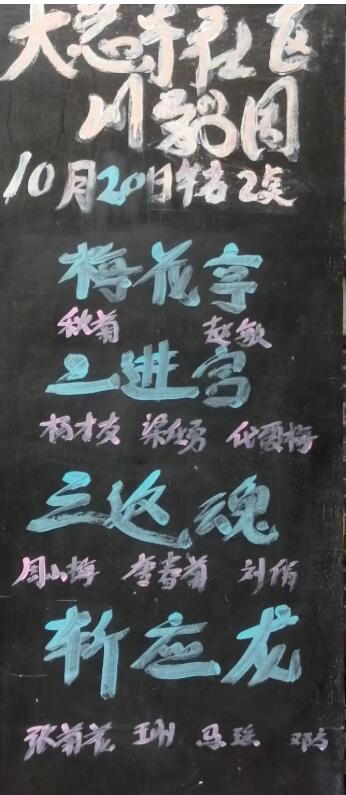 大慈寺社区
川剧团
10月20日午后2点
梅花亭
秋菊 赵敏
二进宫
杨才友 梁 勇 代雪梅
三返魂
周小梅 李春菊 刘俏
斩应龙
张菊花 王洲 马瑶 邓